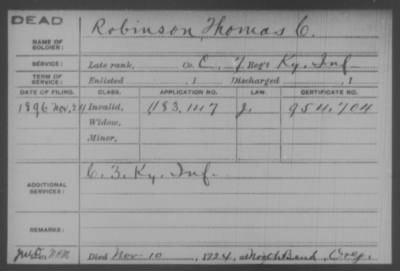 DEAD
Robinson, Thomas C.
NAME OF SOLDIER:
SERVICE: Late rank, Co. C, 7 Reg't Ky. Inf.
TERM OF SERVICE: Enlisted , 1 Discharged , 1
DATE OF FILING. CLASS. APPLICATION NO. LAW. CERTIFICATE NO.
1896 Nov. 24 Invalid, 1183,147 J. 954,704
Widow,
Minor,
ADDITIONAL SERVICES: C. 3. Ky. Inf.
REMARKS:
Died Nov- 10, 1924, at North Bend, Oreg.